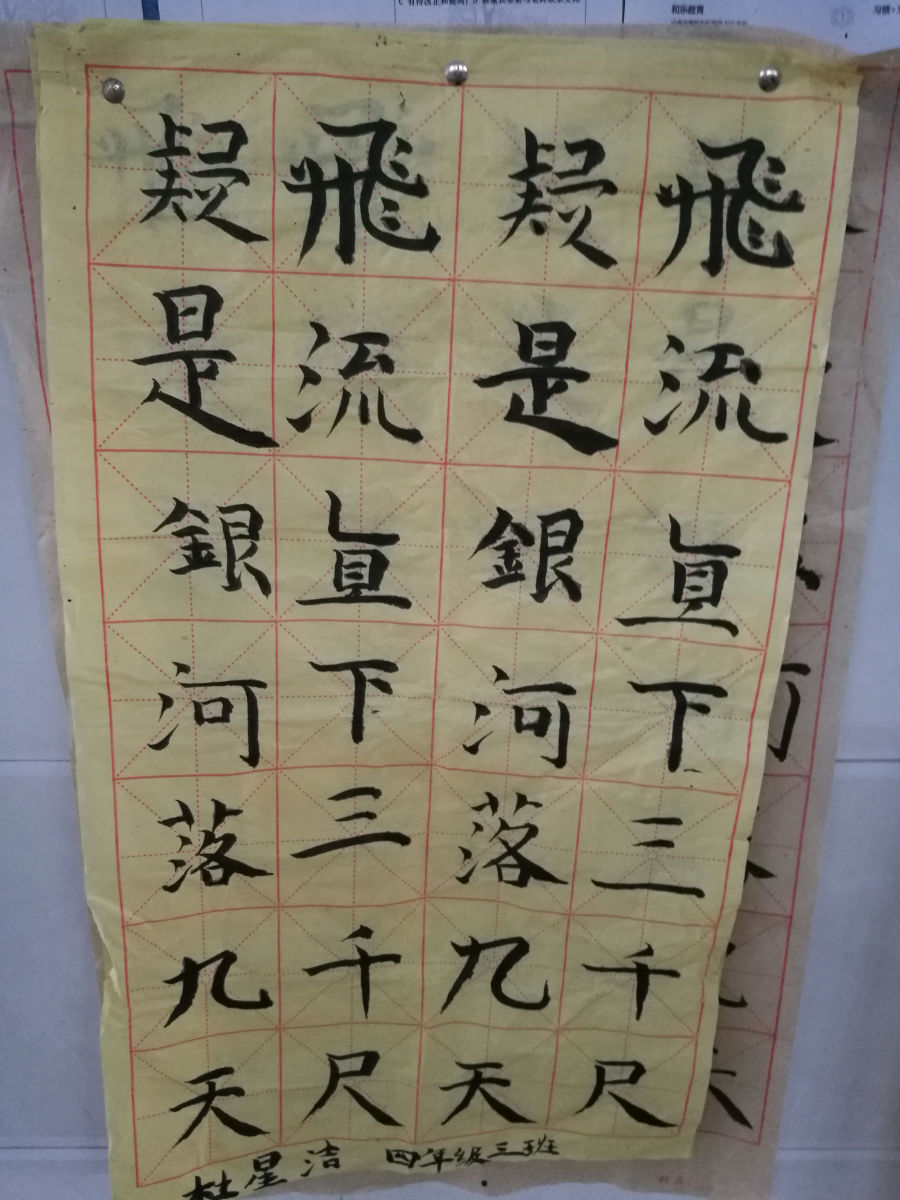 飛流直下三千尺
疑是銀河落九天
飛流直下三千尺
疑是銀河落九天
四年级三班
杜星洁
和乐教育